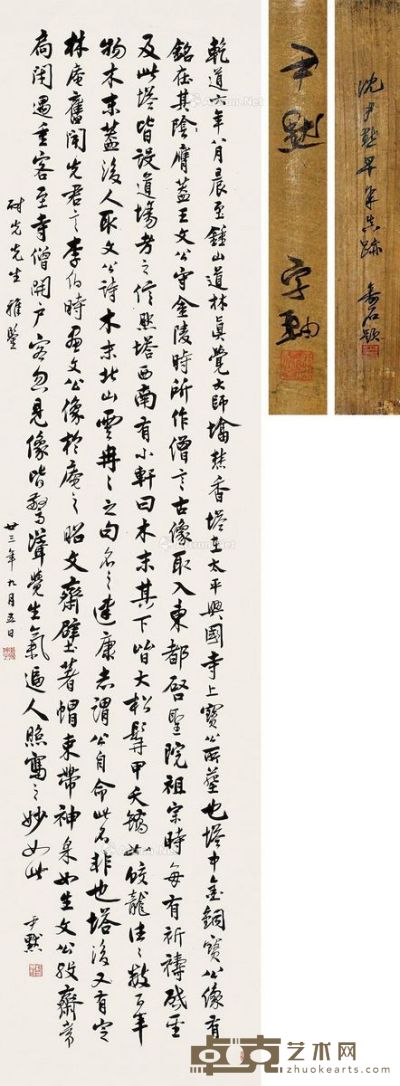 乾道六年八月晨至鍾山道林真覺大師塔焚香塔在太平興國寺上寶公所葬也塔中金銅寶公像有
銘在其膺蓋王文公守金陵時所作僧言古像取入東都啓聖院祖宗時每有祈禱啓聖
及此塔皆設道場考之信然塔西南有小軒曰木末其下皆大松髯甲夭矯如蛟龍往往數百年
物木末蓋後人取文公詩木末北山雲冉冉之句名之建康志謂公自命此名非也塔後又有定
林庵舊聞先君言李伯時畫文公像於庵之昭文齋壁著帽束帶神采如生文公歿齋常
扃閉遇重客至寺僧開戶客忽見像皆驚聳覺生氣逼人照寫之妙如此
尹默
耐先先生雅鑒
廿三年九月五日
尹默 字軸
沈尹默早年真跡
卓克艺术网
zhuokearts.com